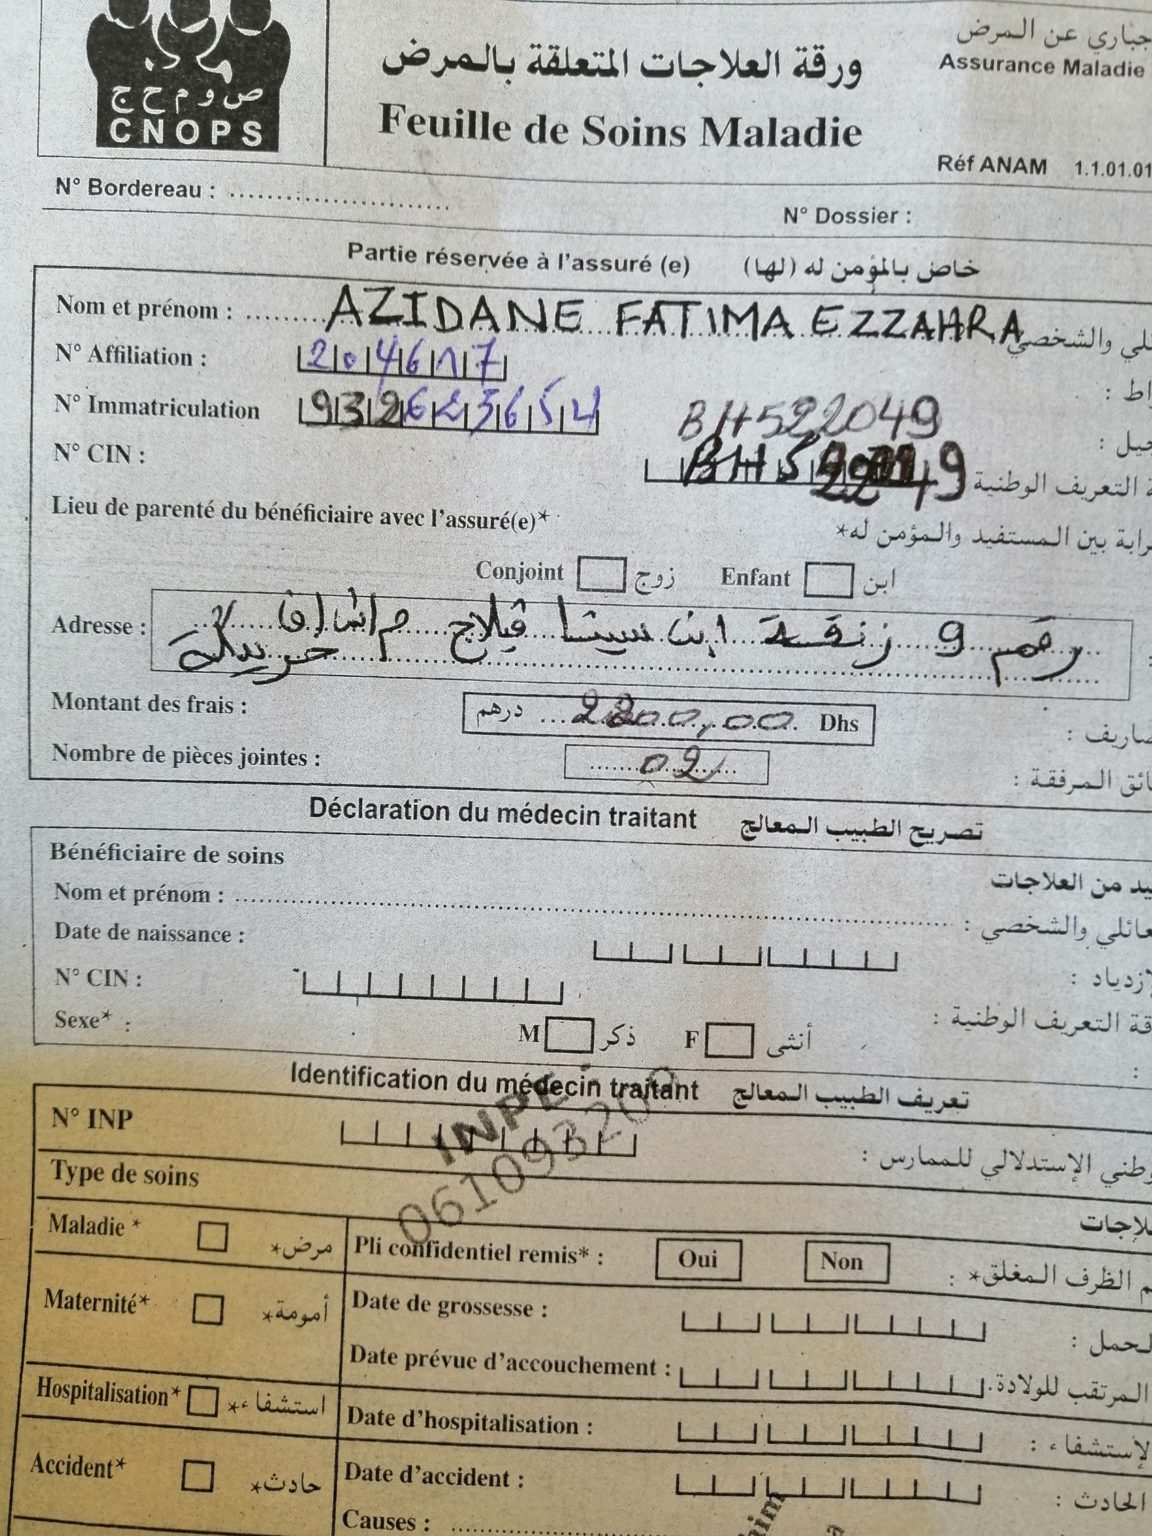 ص و م ح ج
CNOPS
ورقة العلاجات المتعلقة بالمرض
Feuille de Soins Maladie
جباري عن المرض
Assurance Maladie
Réf ANAM 1.1.01.01
N° Bordereau :
N° Dossier :
Partie réservée à l'assuré (e) خاص بالمؤمن له (لها)
Nom et prénom : AZIDANE FATIMA EZZAHRA
N° Affiliation : 204617
N° Immatriculation
BH522049
N° CIN :
Lieu de parenté du bénéficiaire avec l'assuré(e)*
Conjoint زوج Enfant ابن
Adresse : رقم 9 زنقة ابن سينا فيلاج
خريبكة
Montant des frais : درهم 2200,00 Dhs
Nombre de pièces jointes : 02
Déclaration du médecin traitant تصريح الطبيب المعالج
Bénéficiaire de soins يد من العلاجات
Nom et prénom : عائلي والشخصي :
Date de naissance :
N° CIN : قة التعريف الوطنية :
Sexe* : M ذكر F أنثى
Identification du médecin traitant تعريف الطبيب المعالج
INPE :
N° INP وطني الإستدلالي للممارس :
Type de soins
Maladie * مرض* Pli confidentiel remis* : Oui Non م الظرف المغلق* :
Maternité* أمومة* Date de grossesse : لحمل :
Date prévue d'accouchement : المرتقب للولادة.
Hospitalisation* استشفاء* Date d'hospitalisation : لإستشفاء :
Accident* حادث* Date d'accident : الحادث :
Causes :